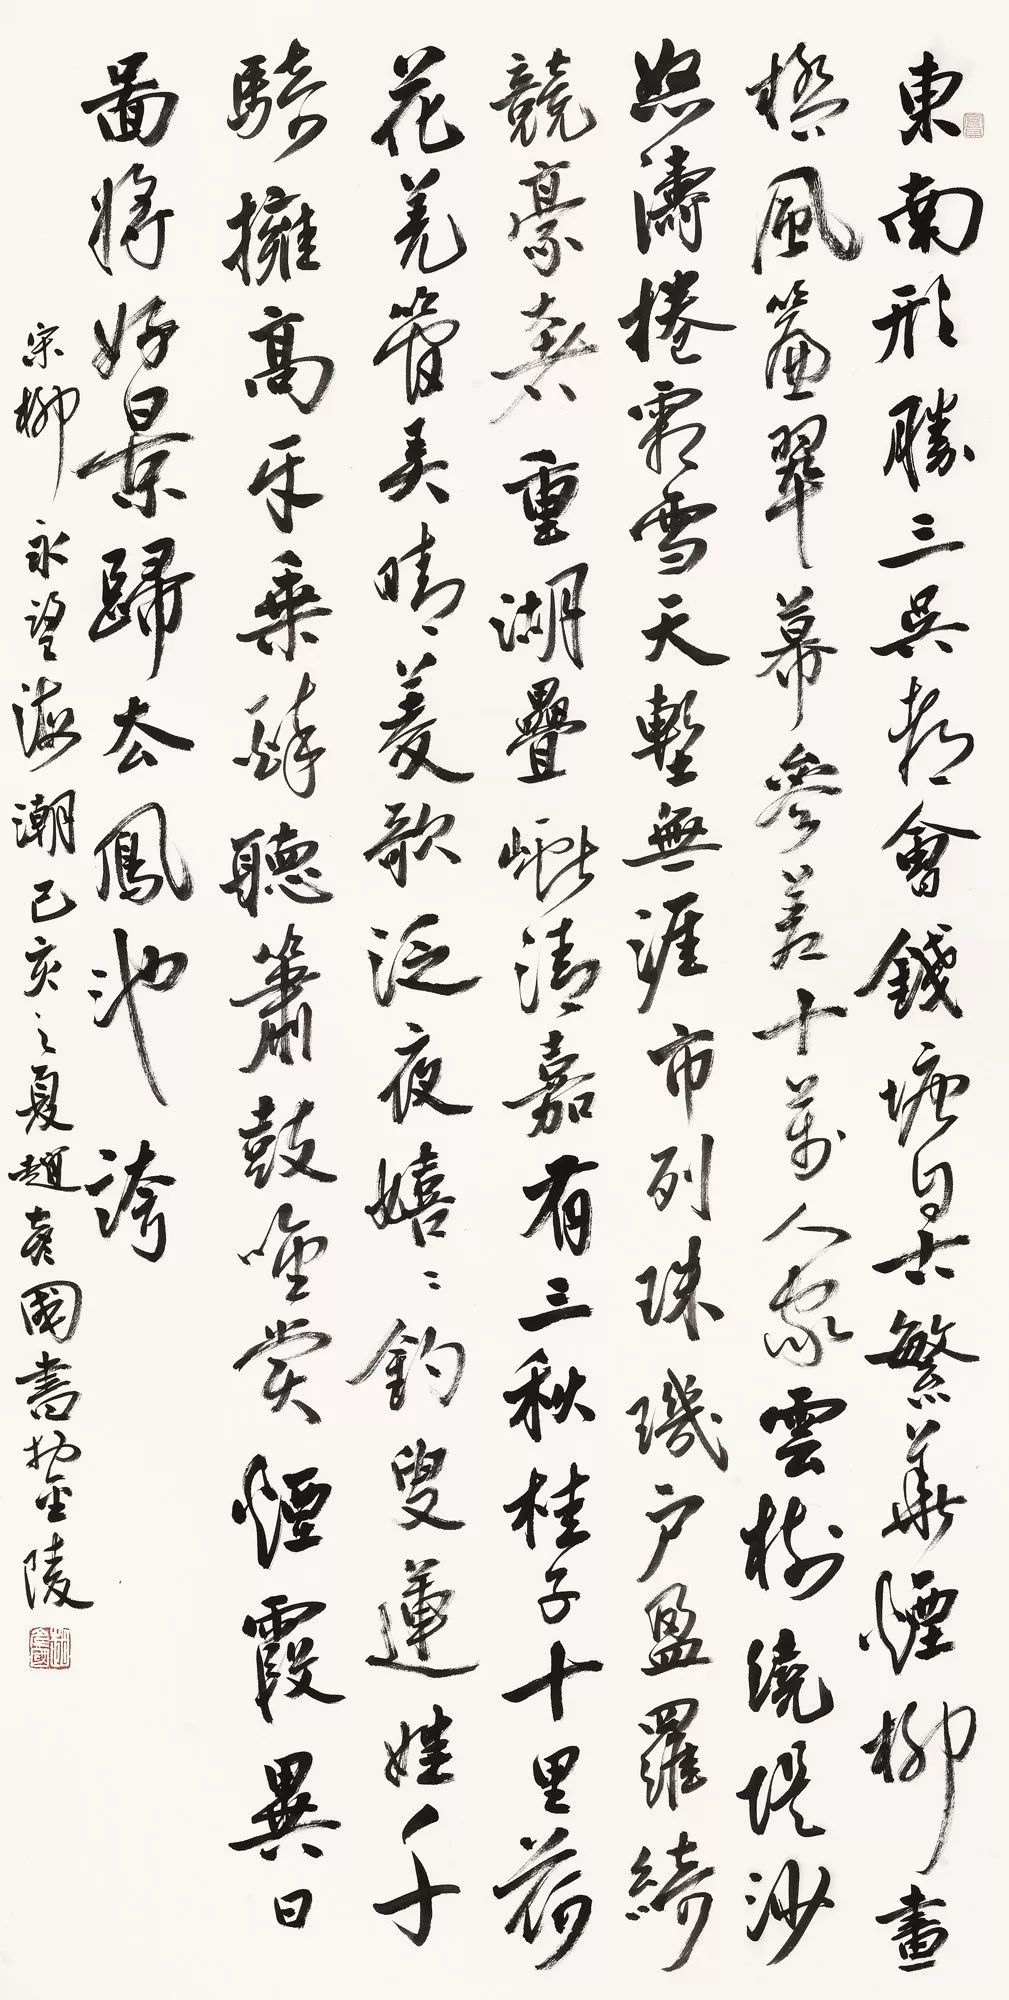 東南形勝三吳都會錢塘自古繁華煙柳畫
橋風簾翠幕參差十萬人家雲樹繞堤沙
怒濤捲霜雪天塹無涯市列珠璣戶盈羅綺
競豪奢重湖疊巘清嘉有三秋桂子十里荷
花羌管弄晴〻菱歌泛夜嬉〻釣叟蓮娃千
騎擁高牙乘醉聽簫鼓吟賞煙霞異日
圖將好景歸去鳳池誇
宋柳永望海潮己亥之夏趙彥國書於金陵